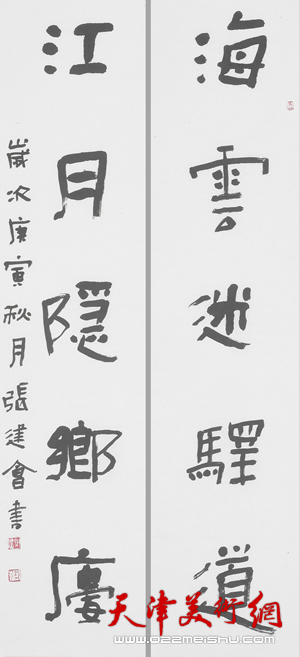 海雲迷驛道
江月隱鄉廔
歲次庚寅秋月張建會書
天津美術網
www.022meishu.com